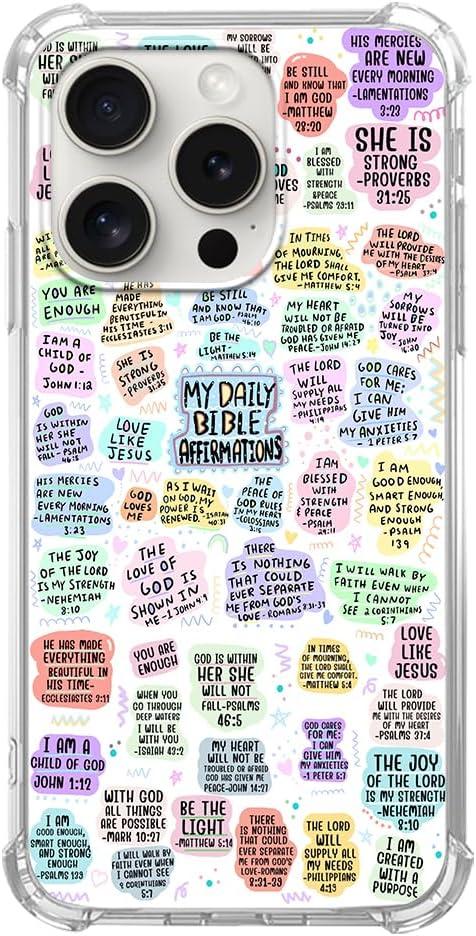 GOD IS WITHIN
HER SHE
WILL
FA
THE LOVE
MY SORROWS
WILL BE
BE STILL
AND KNOW THAT
I AM GOD
-MATTHEW
28:20
HIS MERCIES
ARE NEW
EVERY MORNING
-LAMENTATIONS
3:23
SHE IS
STRONG
-PROVERBS
31:25
I AM
BLESSED
WITH
STRENGTH
&PEACE
-PSALMS 29:11
IN TIMES
OF MOURNING,
THE LORD SHALL
GIVE ME COMFORT.
-MATTHEW 5:4
THE LORD
WILL PROVIDE
ME WITH THE DESIRES
OF MY HEART
-PSALM 37:4
YOU ARE
ENOUGH
HE HAS
MADE
EVERYTHING
BEAUTIFUL IN
HIS TIME -
ECCLESIASTES 3:11
BE STILL
AND KNOW THAT
I AM GOD- PSALM
46:10
MY HEART
WILL NOT BE
TROUBLED OR AFRAID
GOD HAS GIVEN ME
PEACE.-JOHN 14:27
MY
SORROWS
WILL BE
TURNED INTO
JOY
-JOHN
16:20
I AM A
CHILD OF
GOD -
JOHN 1:12
SHE IS
STRONG
-PROVERBS
31:25
BE THE
LIGHT-
MATTHEW 5:14
MY DAILY
BIBLE
AFFIRMATIONS
THE LORD
WILL
SUPPLY ALL
MY NEEDS
-PHILIPPIANS
4:19
GOD CARES
FOR ME;
I CAN
GIVE HIM
MY ANXIETIES
- 1 PETER 5:7
GOD
IS WITHIN
HER SHE
WILL NOT
FALL- PSALM
46:5
LOVE
LIKE
JESUS
HIS MERCIES
ARE NEW
EVERY MORNING
-LAMENTATIONS
3:23
GOD
LOVES
ME
AS I WAIT
ON GOD, MY
POWER IS
RENEWED. -ISAIAH
40:31
THE
PEACE OF
GOD RULES
IN MY HEART
-COLOSSIANS
3:15
I AM
BLESSED
WITH
STRENGTH
& PEACE
-PSALM
29:11
I AM
GOOD ENOUGH,
SMART ENOUGH,
AND STRONG
ENOUGH
-PSALM
139
THE JOY
OF THE LORD
IS MY STRENGTH
-NEHEMIAH
8:10
THE
LOVE OF
GOD IS
SHOWN IN
ME -1 JOHN 4:9
THERE
IS NOTHING
THAT COULD
EVER SEPARATE
ME FROM GOD'S
LOVE - ROMANS 8:31-39
I WILL WALK BY
FAITH EVEN WHEN
I CANNOT
SEE 2 CORINTHIANS
5:7
HE HAS MADE
EVERYTHING
BEAUTIFUL IN
HIS TIME-
ECCLESIASTES 3:11
YOU ARE
ENOUGH
GOD IS WITHIN
HER SHE
WILL NOT
FALL-PSALM
46:5
IN TIMES
OF MOURNING,
THE LORD SHALL
GIVE ME COMFORT.
-MATTHEW 5:4
LOVE
LIKE
JESUS
I AM A
CHILD OF GOD
JOHN 1:12
WHEN YOU
GO THROUGH
DEEP WATERS
I WILL BE
WITH YOU
-ISAIAH 43:2
MY HEART
WILL NOT BE
TROUBLED OR AFRAID
GOD HAS GIVEN ME
PEACE-JOHN 14:27
GOD CARES
FOR ME:
I CAN
GIVE HIM
MY ANXIETIES
-1 PETER 5:7
THE LORD
WILL PROVIDE
ME WITH THE DESIRES
OF MY HEART
-PSALMS 37:4
THE JOY
OF THE LORD
IS MY STRENGTH
-NEHEMIAH
8:10
I AM
GOOD ENOUGH,
SMART ENOUGH, AND
STRONG
ENOUGH
-PSALMS 139
WITH GOD
ALL THINGS
ARE POSSIBLE
-MARK 10:27
I WILL WALK BY
FAITH EVEN WHEN
I CANNOT SEE
2 CORINTHIANS
5:7
BE THE
LIGHT
-MATTHEW 5:14
THERE
IS NOTHING
THAT COULD
EVER SEPARATE
ME FROM GOD'S
LOVE-ROMANS
8:31-39
THE LORD
WILL
SUPPLY ALL
MY NEEDS
-PHILIPPIANS
4:19
I AM
CREATED
WITH A
PURPOSE